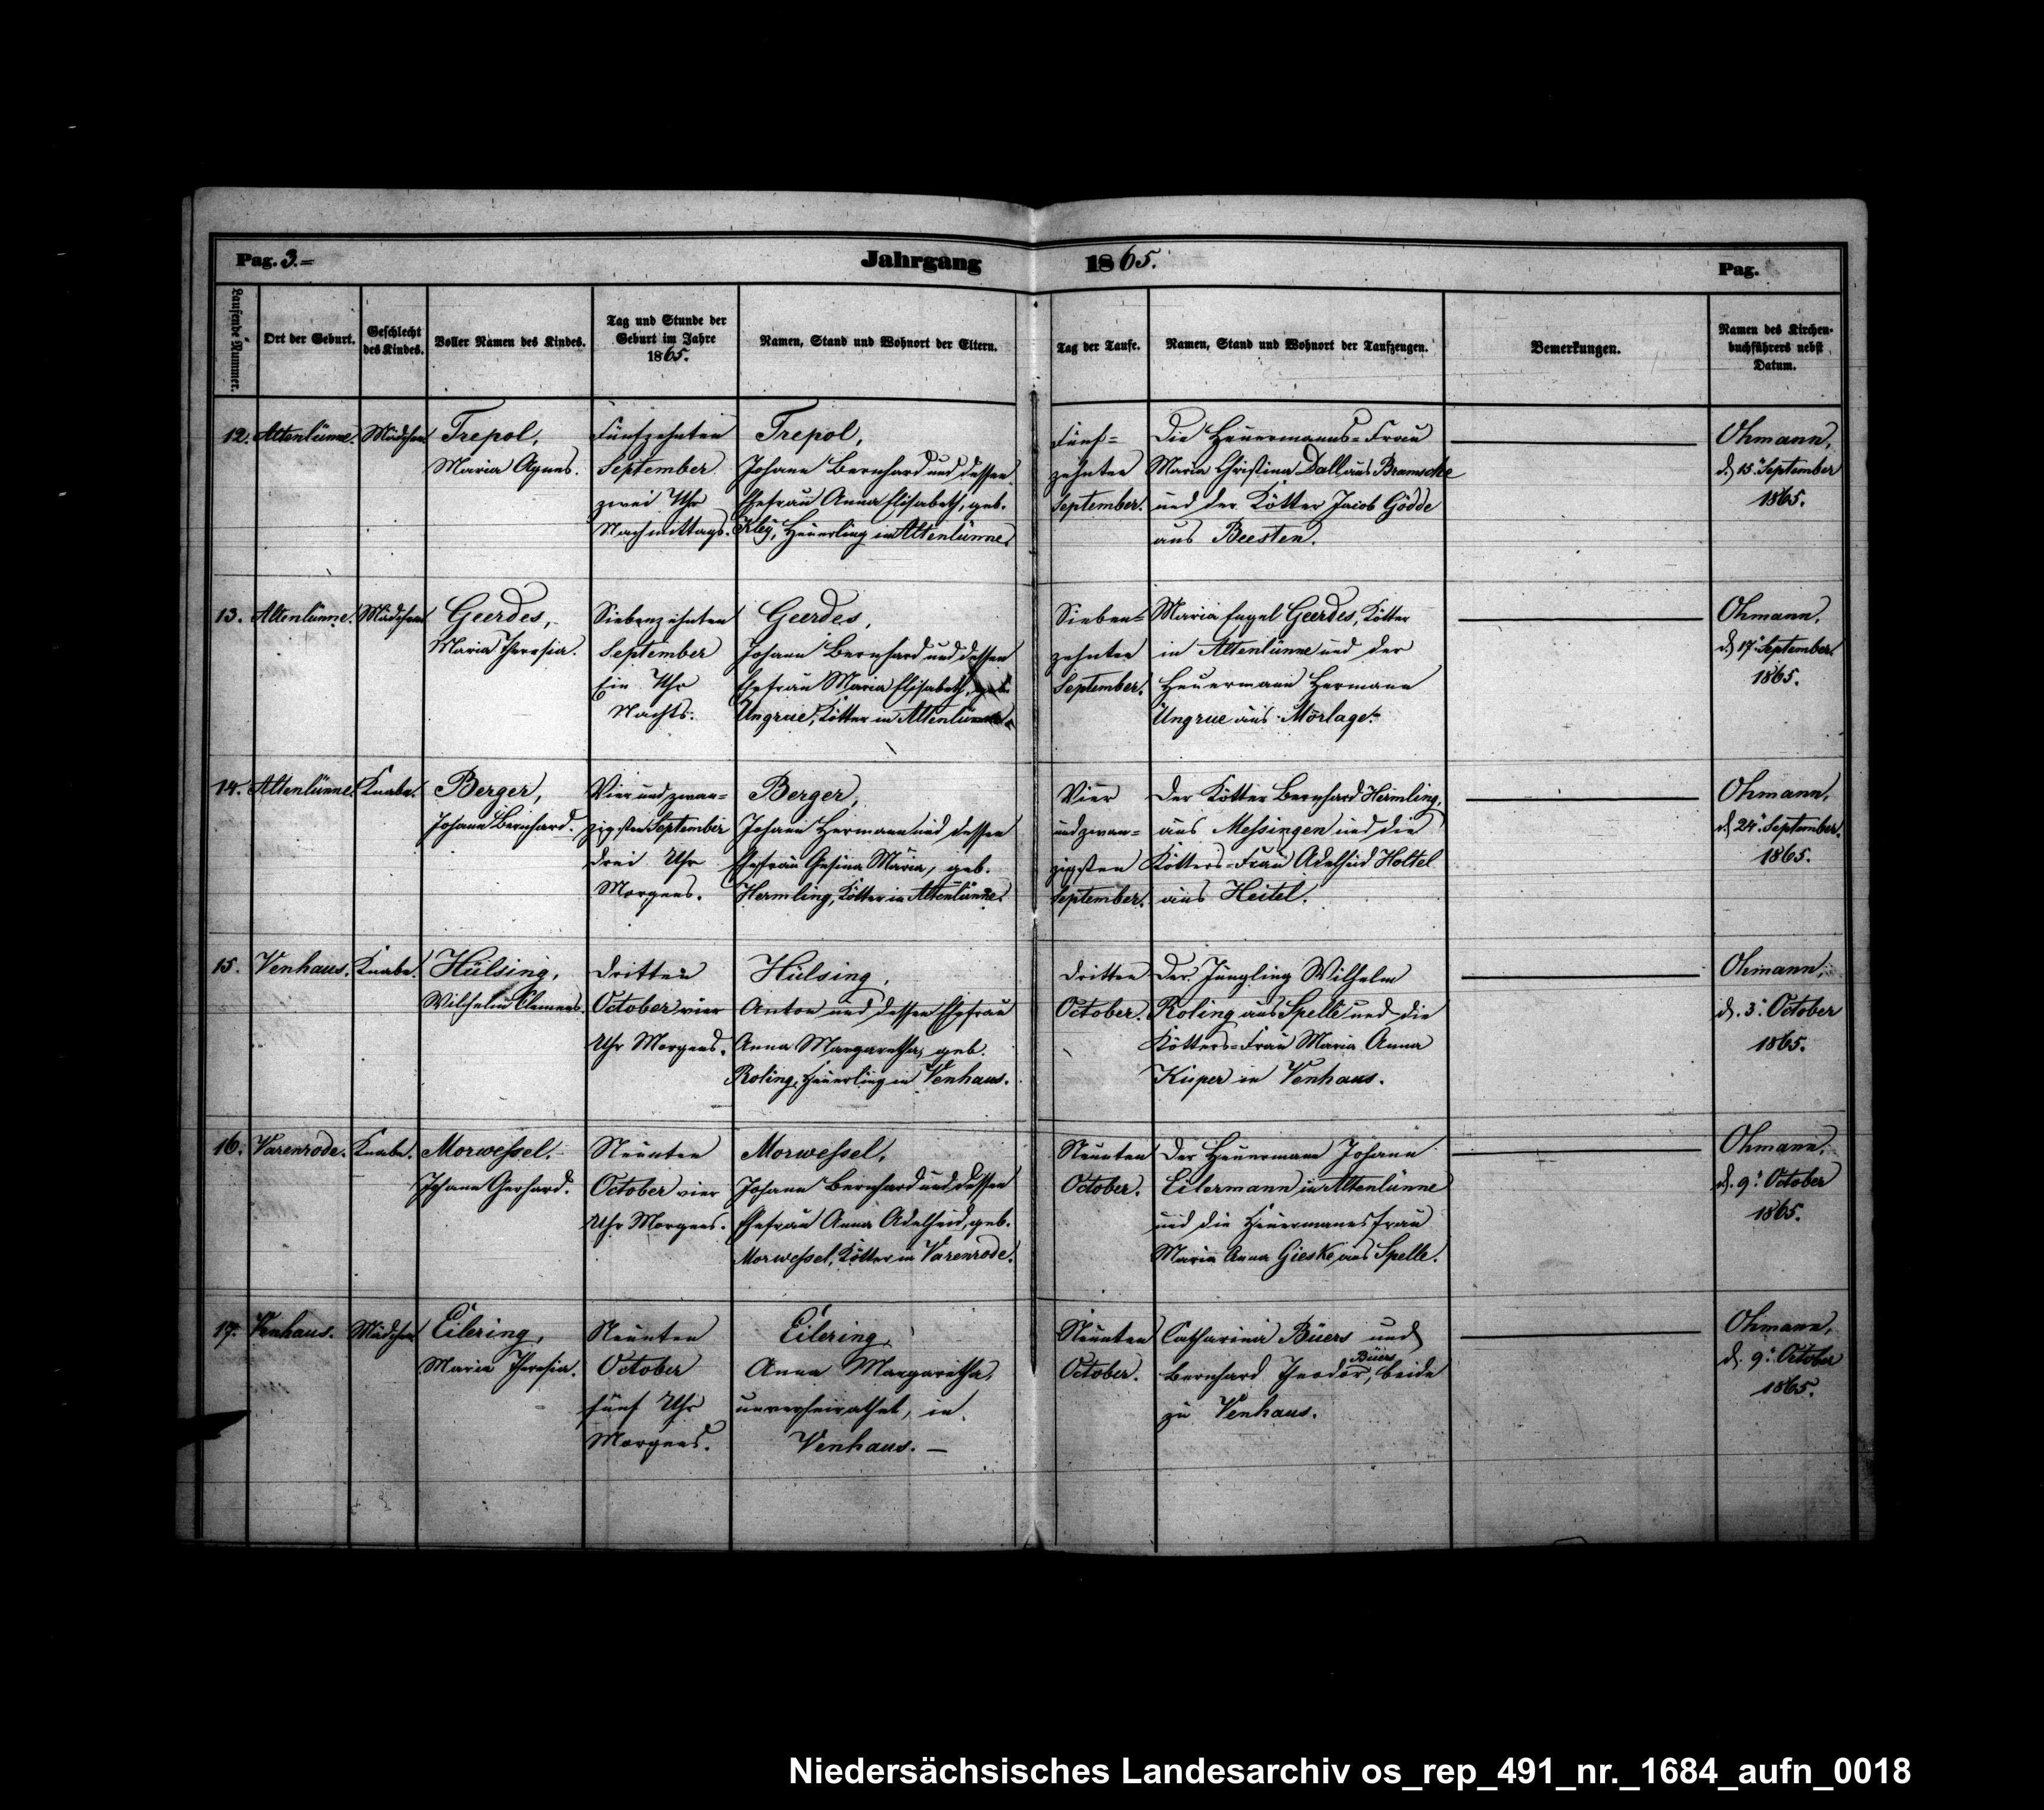 Pag. 3.=
Jahrgang 1865.
Pag.
Laufende Nummer.
Ort der Geburt.
Geschlecht
des Kindes.
Voller Namen des Kindes.
Tag und Stunde der
Geburt im Jahre
1865.
Namen, Stand und Wohnort der Eltern.
Tag der Taufe.
Namen, Stand und Wohnort der Taufzeugen.
Bemerkungen.
Namen des Kirchen-
buchführers nebst
Datum.
12.
Altenlünne.
Mädchen
Trepol,
Maria Agnes.
Fünfzehnten
September
zwei Uhr
Nachmittags.
Trepol,
Johann Bernhard und dessen
Ehefrau Anna Elisabeth, geb.
Kley, Heuerling in Altenlünne.
Fünf=
zehnten
September.
Die Heuermanns=Frau
Maria Christina Dall aus Bramsche
und der Kötter Jacob Gödde
aus Beesten.
Ohmann,
d. 15. September
1865.
13.
Altenlünne.
Mädchen
Geerdes,
Maria Theresia.
Siebenzehnten
September
Ein Uhr
Nachts.
Geerdes,
Johann Bernhard und dessen
Ehefrau Maria Elisabeth, geb.
Ungrue, Kötter in Altenlünne.
Sieben=
zehnten
September.
Maria Engel Geerdes, Kötter
in Altenlünne und der
Heuermann Hermann
Ungrue aus Mörlage.
Ohmann,
d. 17. September.
1865.
14.
Altenlünne.
Knabe.
Berger,
Johann Bernhard.
Vier und zwan=
zigsten September
drei Uhr
Morgens.
Berger,
Johann Hermann und dessen
Ehefrau Gesina Maria, geb.
Hermling, Kötter in Altenlünne.
Vier
und zwan=
zigsten
September.
Der Kötter Bernhard Hermling,
aus Messingen und die
Kötters=Frau Adelheid Holtel
aus Heitel.
Ohmann,
d. 24. September.
1865.
15.
Venhaus.
Knabe.
Hülsing,
Wilhelm Clemens.
Dritten
October vier
Uhr Morgens.
Hülsing,
Anton und dessen Ehefrau
Anna Margaretha, geb.
Roling, Heuerling in Venhaus.
Dritten
October.
Der Jüngling Wilhelm
Roling aus Spelle und die
Kötters=Frau Maria Anna
Küper in Venhaus.
Ohmann,
d. 3. October
1865.
16.
Varenrode.
Knabe.
Morwessel.
Johann Gerhard.
Neunten
October vier
Uhr Morgens.
Morwessel,
Johann Bernhard und dessen
Ehefrau Anna Adelheid, geb.
Morwessel, Kötter in Varenrode.
Neunten
October.
Der Heuermann Johann
Eilermann in Altenlünne
und die Heuermannsfrau
Maria Anna Gieske aus Spelle.
Ohmann,
d. 9. October
1865.
17.
Venhaus.
Mädchen
Eilering,
Maria Theresia.
Neunten
October
fünf Uhr
Morgens.
Eilering,
Anna Margaretha,
unverheirathet, in
Venhaus. —
Neunten
October.
Catharina Büers und
Büers
Bernhard Theodor, beide
zu Venhaus.
Ohmann,
d. 9. October
1865.
Niedersächsisches Landesarchiv os_rep_491_nr._1684_aufn_0018